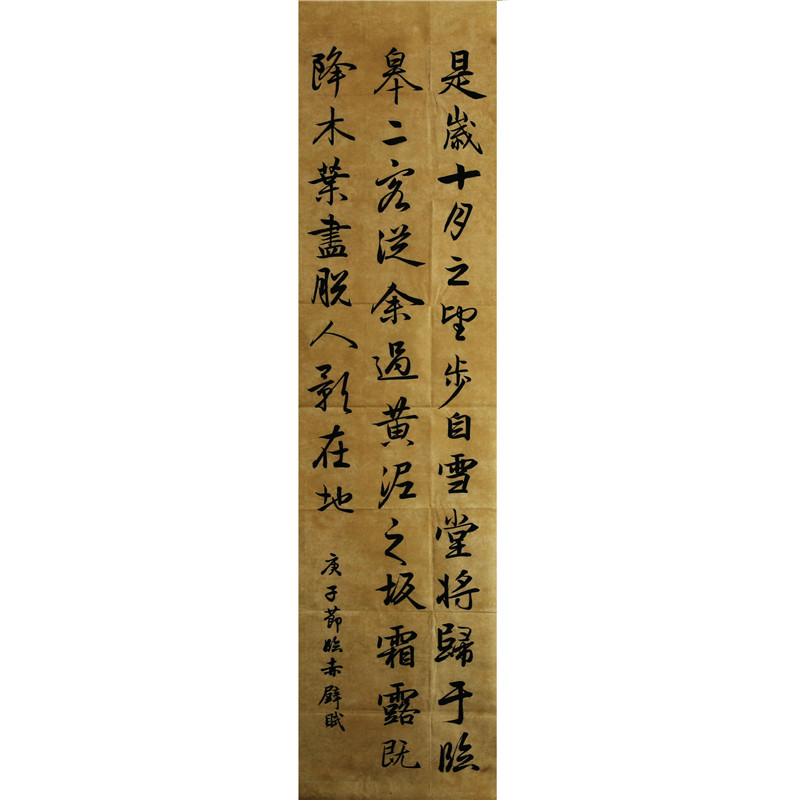 是歲十月之望步自雪堂將歸于臨
皋二客從余過黃泥之坂霜露既
降木葉盡脫人影在地
庚子節臨赤壁賦